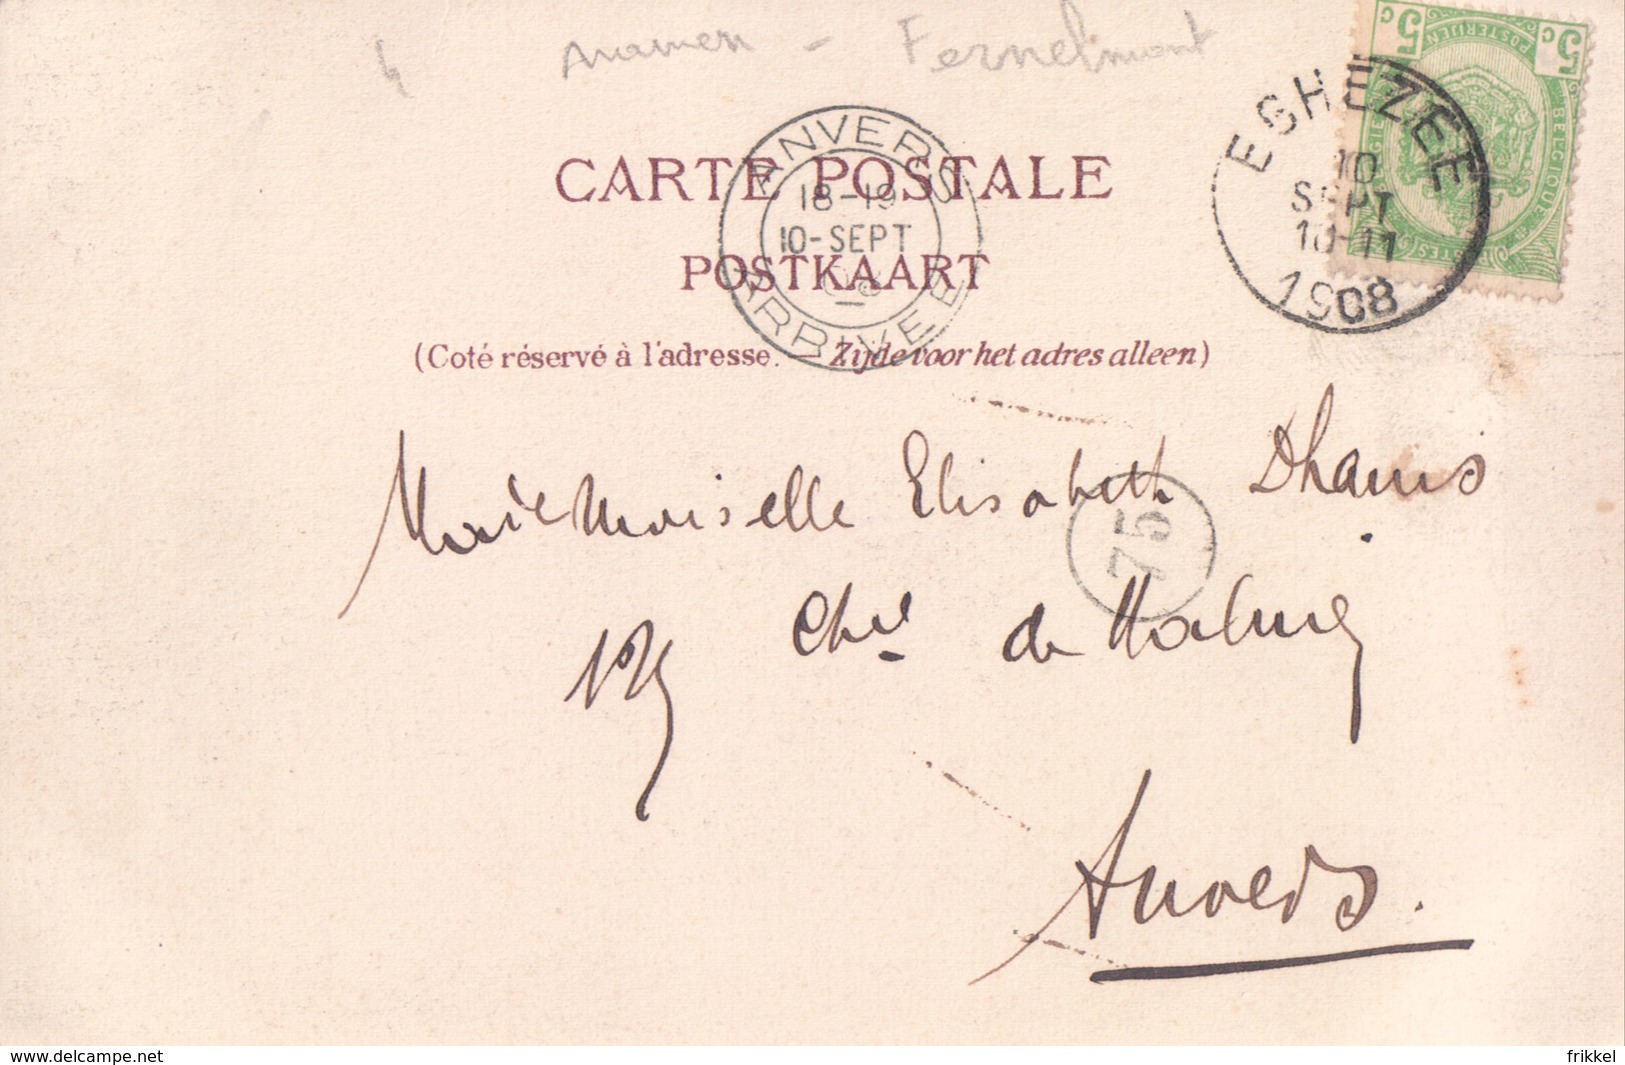 Namen - Fernelmont
5 c 5 c
POSTERIJEN
BELGIQUE
EGHEZÉE
10
SEPT
10-11
1908
ANVERS
18-19
10-SEPT
ARRIVÉE
CARTE POSTALE
POSTKAART
(Coté réservé à l'adresse. — Zijde voor het adres alleen)
Mademoiselle Elisabeth Dhanis
75
Chée de Malines
Anvers.
www.delcampe.net
frikkel